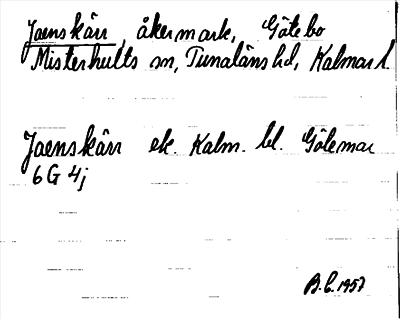 Jaenskärr, åkermark, Götebo
Misterhults sn, Tunaläns hd, Kalmar l.
Jaenskärr ek. Kalm. bl. Götemar
6 G 4j